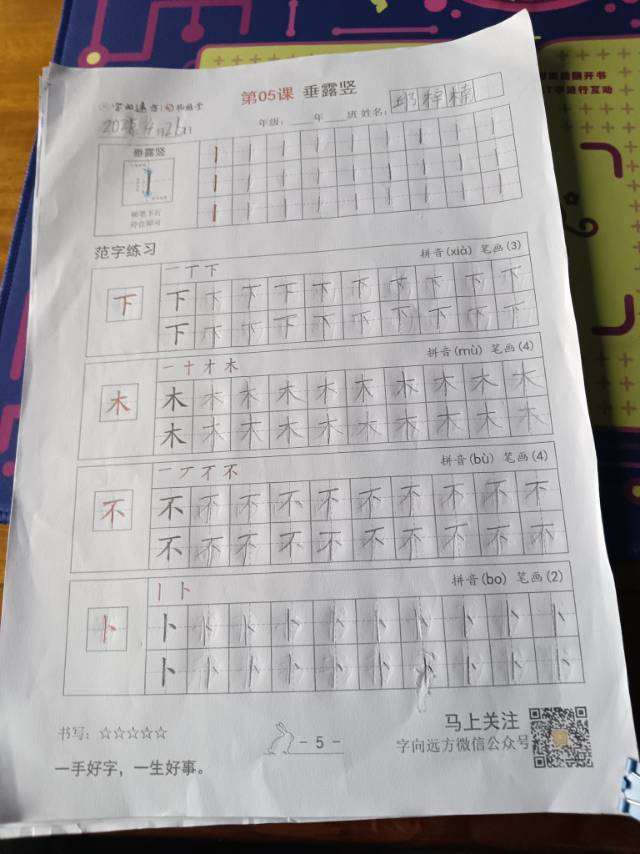 第05课 垂露竖
年级： 年 班 姓名：
垂露竖
范字练习
一 丁 下
拼音(xià) 笔画(3)
下 下 下 下 下 下 下 下 下 下
下 下 下 下 下 下 下 下 下 下
一 十 才 木
拼音(mù) 笔画(4)
木 木 木 木 木 木 木 木 木 木
木 木 木 木 木 木 木 木 木 木
一 丆 不 不
拼音(bù) 笔画(4)
不 不 不 不 不 不 不 不 不 不
不 不 不 不 不 不 不 不 不 不
丨 卜
拼音(bo) 笔画(2)
卜 卜 卜 卜 卜 卜 卜 卜 卜 卜
卜 卜 卜 卜 卜 卜 卜 卜 卜 卜
书写：☆☆☆☆☆
一手好字，一生好事。
- 5 -
马上关注
字向远方微信公众号